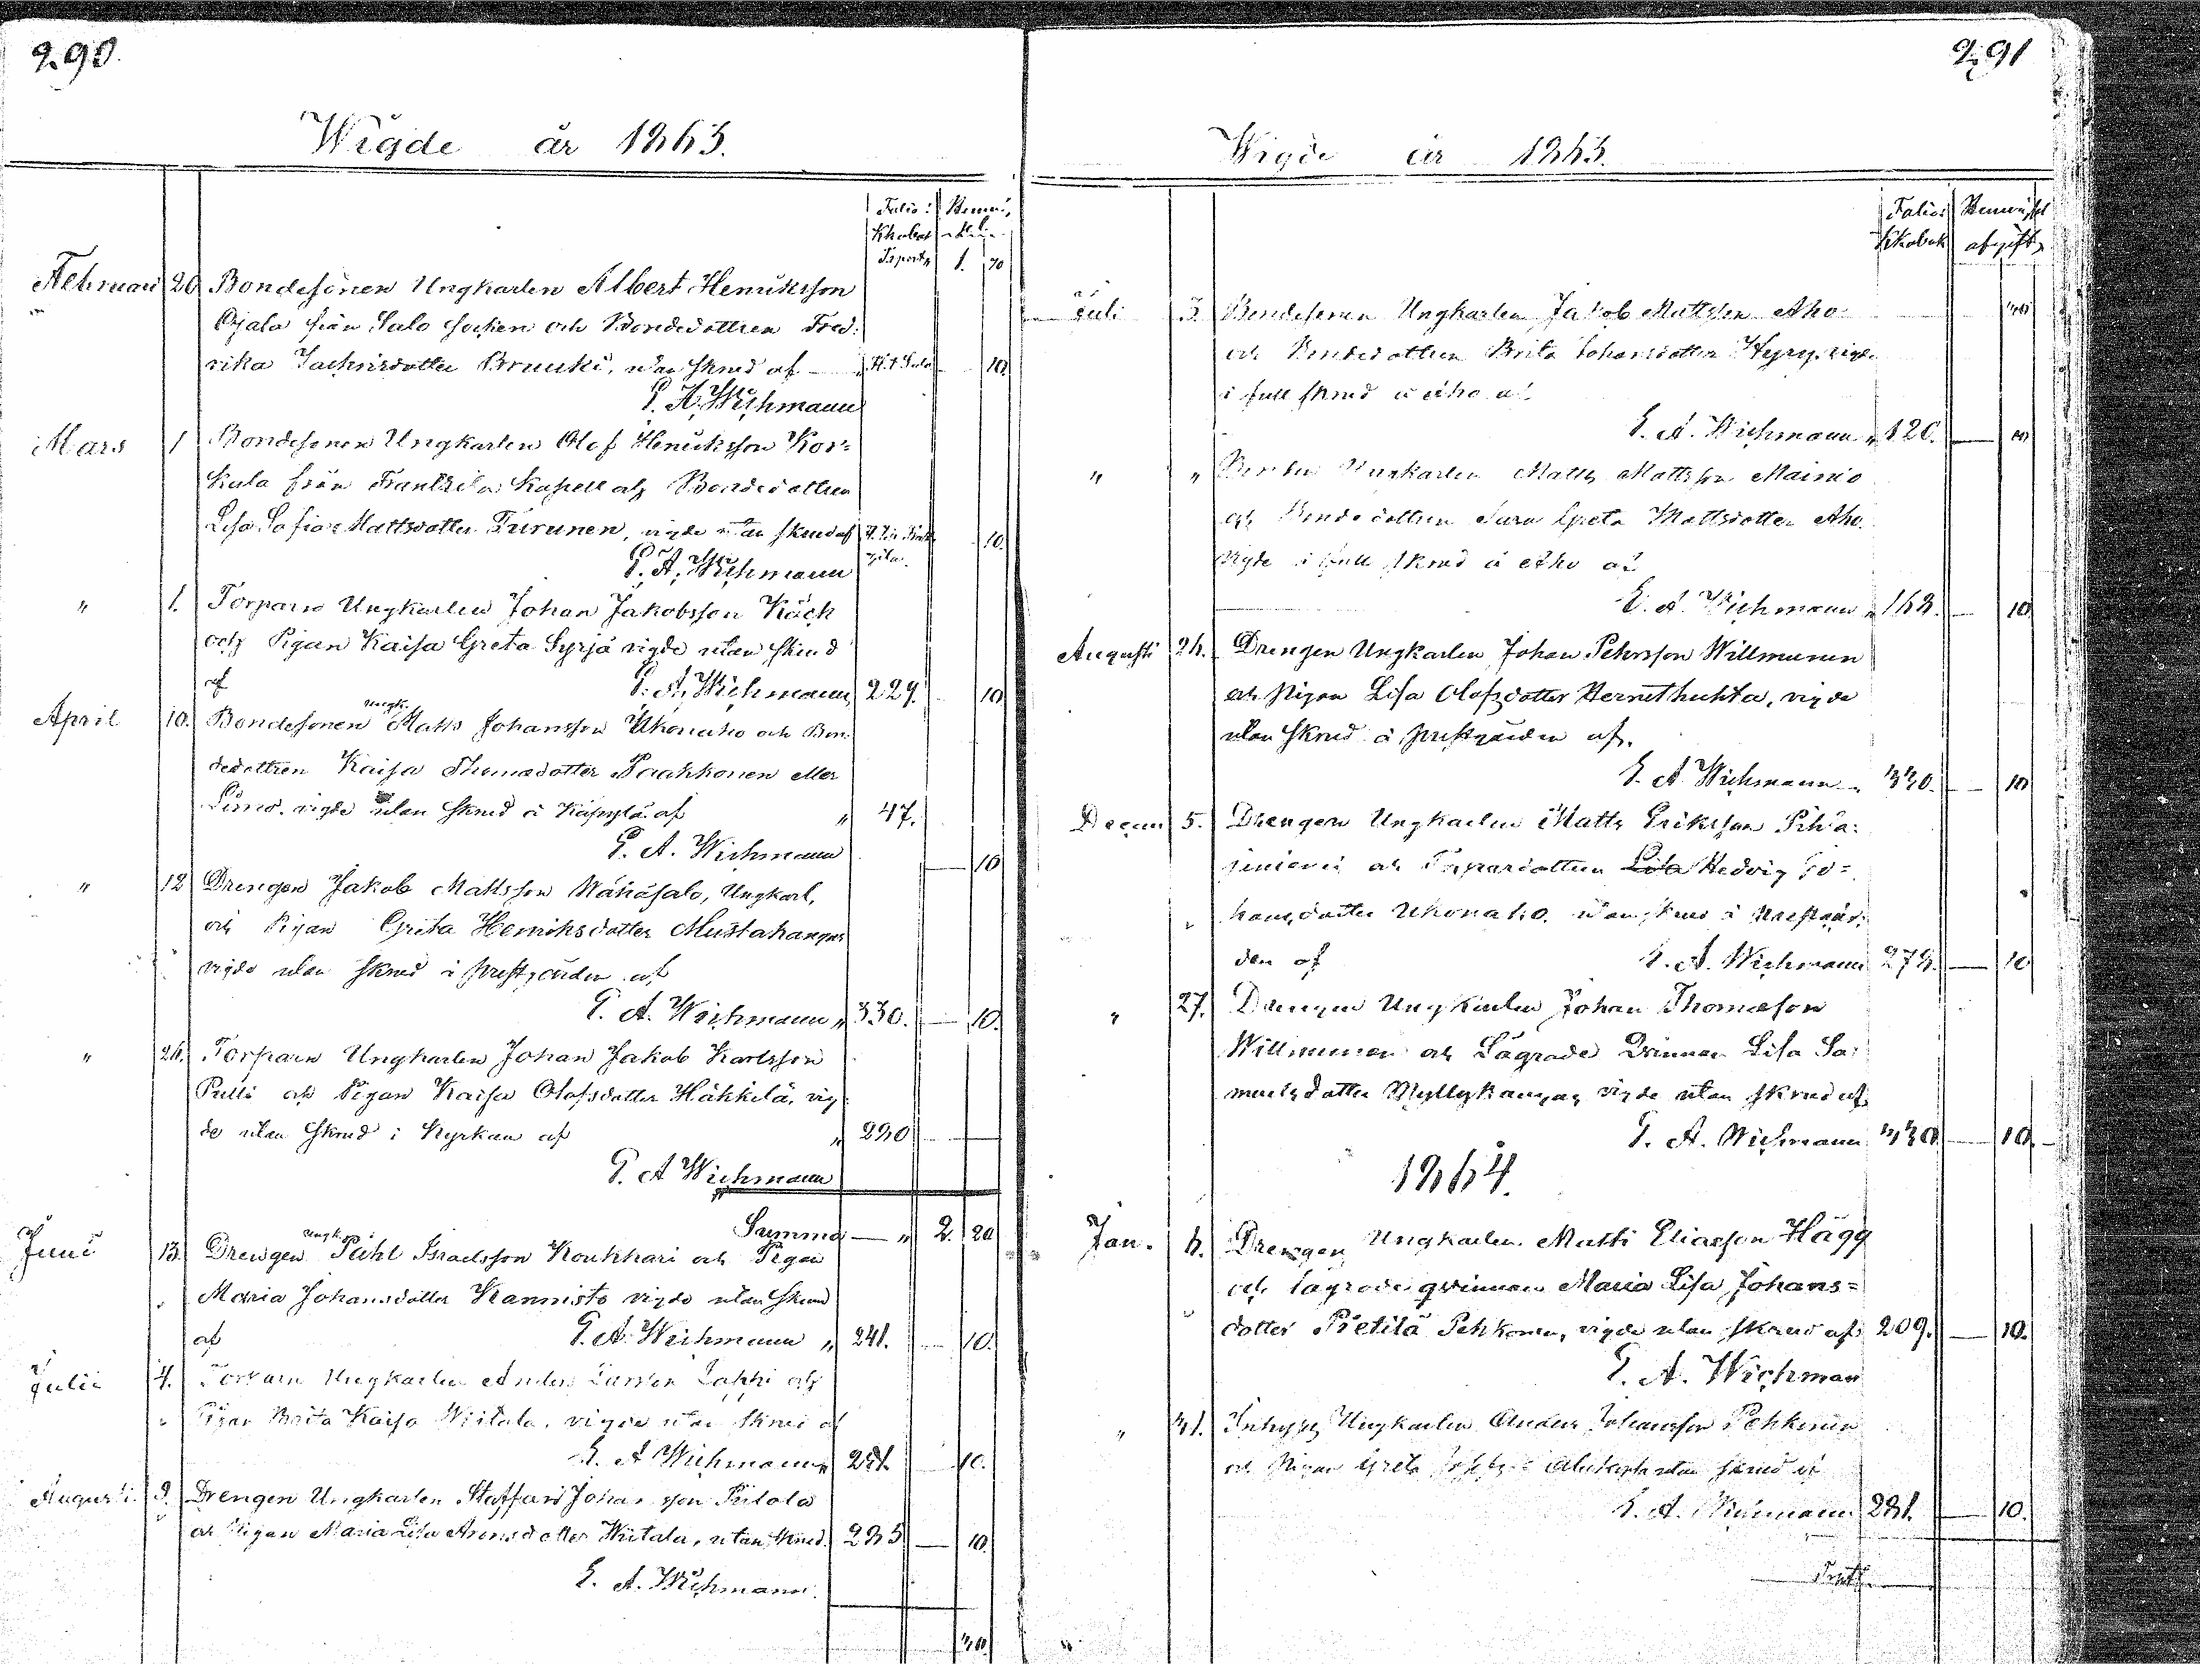 290.
Wigde år 1863.
Folio i Kyrkobok
Transport, 1. 70
Februari 20 Bondesonen Ungkarlen Albert Henriksson
Ojala från Salo socken och Bondedottren Fred-
rika Zachrisdotter Bruuki, utan skrud af — H.t. Salo — 10.
G. A. Wichmann
Mars 1 Bondesonen Ungkarlen Olof Henriksson Kor-
kula från Frantsila Kapell och Bondedottren
Lisa Sofia Mattsdotter Turunen, vigde utan skrud af 10.
G. A. Wichmann
" 1. Torparen Ungkarlen Johan Jakobsson Käck
och Pigan Kaisa Greta Syrjä vigde utan skrud
af G. A. Wichmann 229. 10
April 10. Bondesonen Ungk. Matts Johansson Ukonaho och Bon-
dedottren Kaisa Thomasdotter Paakkonen eller
Limo. vigde utan skrud å Käpylä af " 47.
G. A. Wichmann — 10
" 12 Drengen Jakob Mattsson Wähäsalo, Ungkarl,
och Pigan Greta Henriksdotter Mustakangas
vigde utan skrud å prestgården af
G. A. Wichmann " 330. — 10.
" 26. Torparen Ungkarlen Johan Jakob Karlsson
Pulli och Pigan Kaisa Olofsdotter Häkkilä, vig-
de utan skrud i Kyrkan af " 230 —
G. A Wichmann
Summa — " 2. 20
Juni 13. Drengen Ungk. Påhl Israelsson Koukkari och Pigan
Maria Johansdotter Kannisto vigde utan skrud
af G. A. Wichmann " 241. — 10.
Julii 4. Torparn Ungkarlen Anders Larsson Lappi och
Pigan Brita Kaisa Wiitala, vigde utan skrud af
G. A Wichmann " 10.
Augusti 9. Drengen Ungkarlen Staffan Johansson Piilola
och Pigan Maria Lisa Wiitala, utan skrud. 235 — 10.
G. A. Wichmann.
30.
291
Wigde år 1863.
Folio i Kyrkobok afgift
Juli 5. Bondesonen Ungkarlen Jakob Mattsson Aho
och Bondedottren Brita Johansdotter Hyry, vigde
i full skrud å Aho af
G. A. Wichmann " 120. —
" " Ungkarlen Matts Mattsson Mainio
och Bondedottren Sara Greta Mattsdotter Aho.
vigde i full skrud å Aho af
G. A. Wichmann " 168. — 10
Augusti 26. Drengen Ungkarlen Johan Pehrsson Willmunen
och Pigan Lisa Olofsdotter, vigde
utan skrud å prestgården af.
G. A Wichmann " 330. — 10
Decem 5. Drengen Ungkarlen Matts Eriksson Pihla-
janiemi och Torparedottren Lisa Hedvig Jo-
hansdotter Ukonaho. utan skrud å Prestgår-
den af G. A. Wichmann — 10
" 27. Drengen Ungkarlen Johan Thomasson
Willmunen och Lägrade Qvinnan Lisa Sa-
muelsdotter Myllykangas vigde utan skrud af
G. A. Wichmann 330. — 10. —
1864.
Jan. 6. Drengen Ungkarlen Matti Eliasson Hägg
och lägrade qvinnan Maria Lisa Johans=
dotter Pietilä Pehkonen, vigde utan skrud af 209. — 10.
G. A. Wichman
" 31. Inhyses Ungkarlen Anders Johansson Pehkonen
och Pigan Greta utan skrud af
G. A. Wichmann 231. — 10.